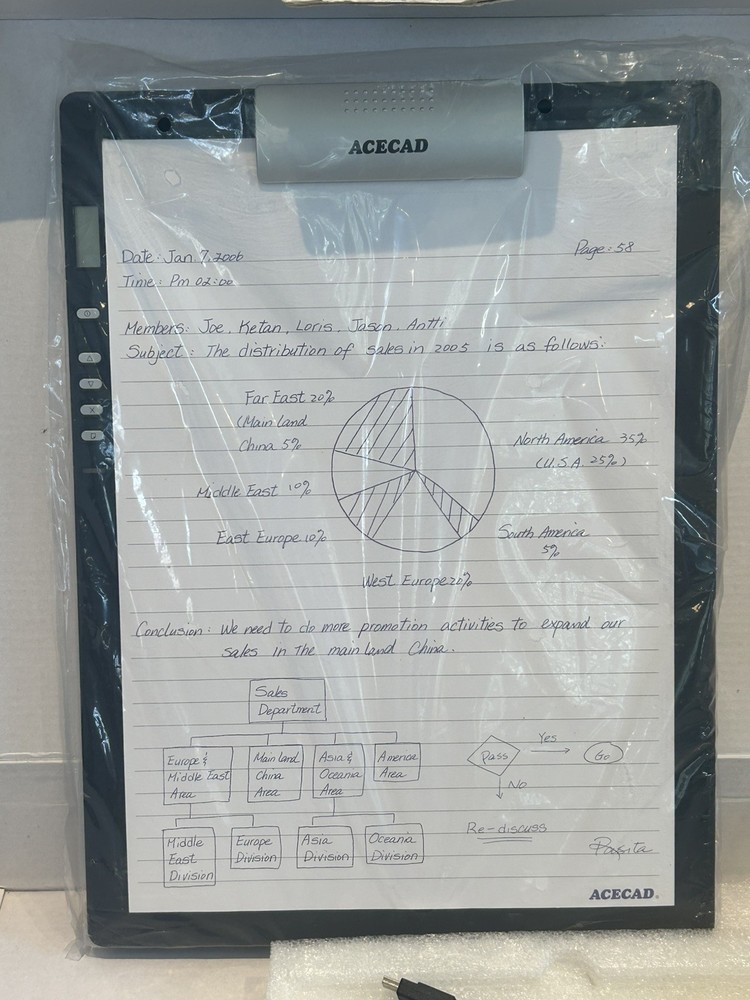 ACECAD
Date: Jan 7. 2006
Page: 58
Time: Pm 02:00
Members: Joe. Ketan, Loris. Jason. Antti
Subject: The distribution of sales in 2005 is as follows:
Far East 20%
(Main land
China 5%
North America 35%
(U.S.A. 25%)
Middle East 10%
East Europe 10%
South America
5%
West Europe 20%
Conclusion: We need to do more promotion activities to expand our
sales in the main land China.
Sales
Department
Europe &
Middle East
Area
Main land
China
Area
Asia &
Oceania
Area
America
Area
Pass
Yes
Go
No
Re-discuss
Middle
East
Division
Europe
Division
Asia
Division
Oceania
Division
ACECAD